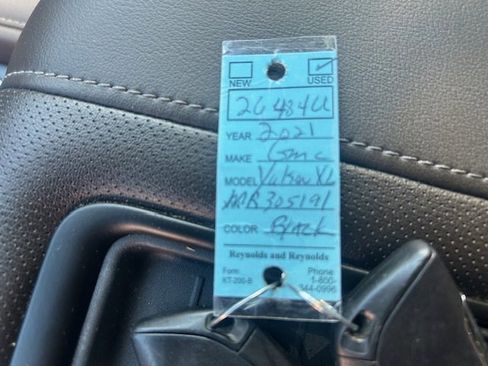 NEW USED
26484U
YEAR 2021
MAKE Gmc
MODEL Yukon XL
305191
COLOR BLACK
Reynolds and Reynolds
Form Phone
KT-200-B 1-800-
344-0996